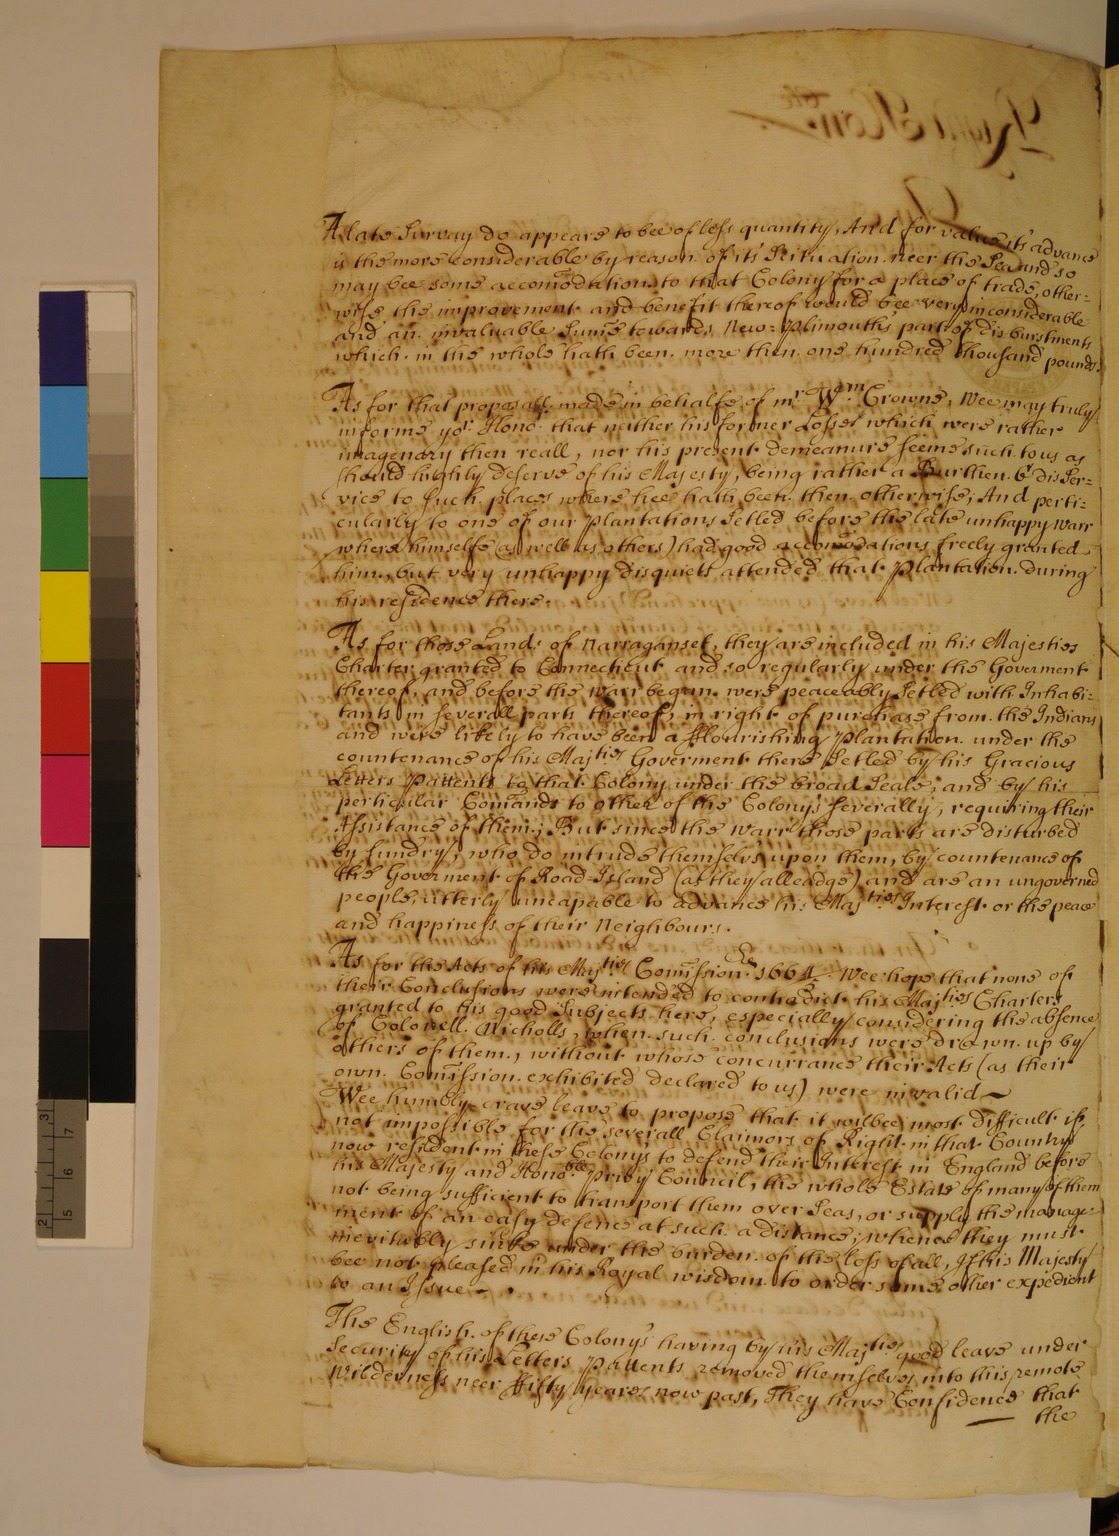 A late Survay do appeare to bee of less quantity, And for value it's advance
is the more Considerable by reason of it's Scituation neer the Sea and so
may bee some accomodation to that Colony for a place of trade, other-
wise the improvement and benefit thereof would bee very inconsiderable
and an invaluable Sume towards New-Plimouth's part of disburstments
which in the whole hath been more then one hundred thousand pounds
As for that proposall made in behalfe of mr Wm Crowne, Wee may truly
informe yor Hono: that neither his former Losses which were rather
imagenary then reall, nor his present demeanure seeme such to us as
should highly deserve of his Majesty, being rather a Burthen & disser-
vice to such places where hee hath been then otherwise; And perti-
cularly to one of our plantations Setled before the late unhappy warr
where himselfe (as well as others) had good accomodations freely granted
him, but very unhappy disquiets attended that plantation during
his residence there.
As for those Lands of Narraganset, they are included in his Majesties
Charter granted to Connecticut and so regularly under the Goverment
thereof, and before the warr begun were peaceably Setled with Inhabi-
tants in severall parts thereof, in right of purchase from the Indians
and were likely to have been a fflourishing plantation under the
countenance of his Majties Goverment there Setled by his Gracious
Letters Pattents to that Colony under the broad Seale, and by his
perticular Comands to other of the Colonys severally, requiring their
Assistance of them; But since the warr those parts are disturbed
by sundry, who do intrude themselvs upon them, by countenance of
the Goverment of Road-Island (as they alleadge) and are an ungoverned
people, utterly uncapable to advance his Majties Interest or the peace
and happiness of their Neighbours.
As for the Acts of his Majties Comissionrs 1664 Wee hope that none of
their Conclusions were intended to contradict his Majties Charters
granted to his good Subjects here, especially considering the absence
of Colonell Nicholls, when such conclusions were drawn up by
others of them, without whose concurrance their Acts (as their
own Comission exhibited declared to us) were invalid
Wee humbly crave leave to propose that it wilbee most difficult if
not impossible for the severall Claimors of Right in that Country
now resident in these Colonys to defend their Interest in England before
his Majesty and Honoble privy Council, the whole Estate of many of them
not being sufficient to transport them over Seas, or supply the manage-
ment of an easy defence at such a distance; whence they must
inevitably sinke under the burden of the loss of all, If his Majesty
bee not pleased in his Royal wisdom to order some other expedient
to an Issue.
The English of these Colonys having by his Majties good leave under
Security of his Letters Pattents removed themselves into this remote
Wilderness neer ffifty years now past, They have Confidence that
the